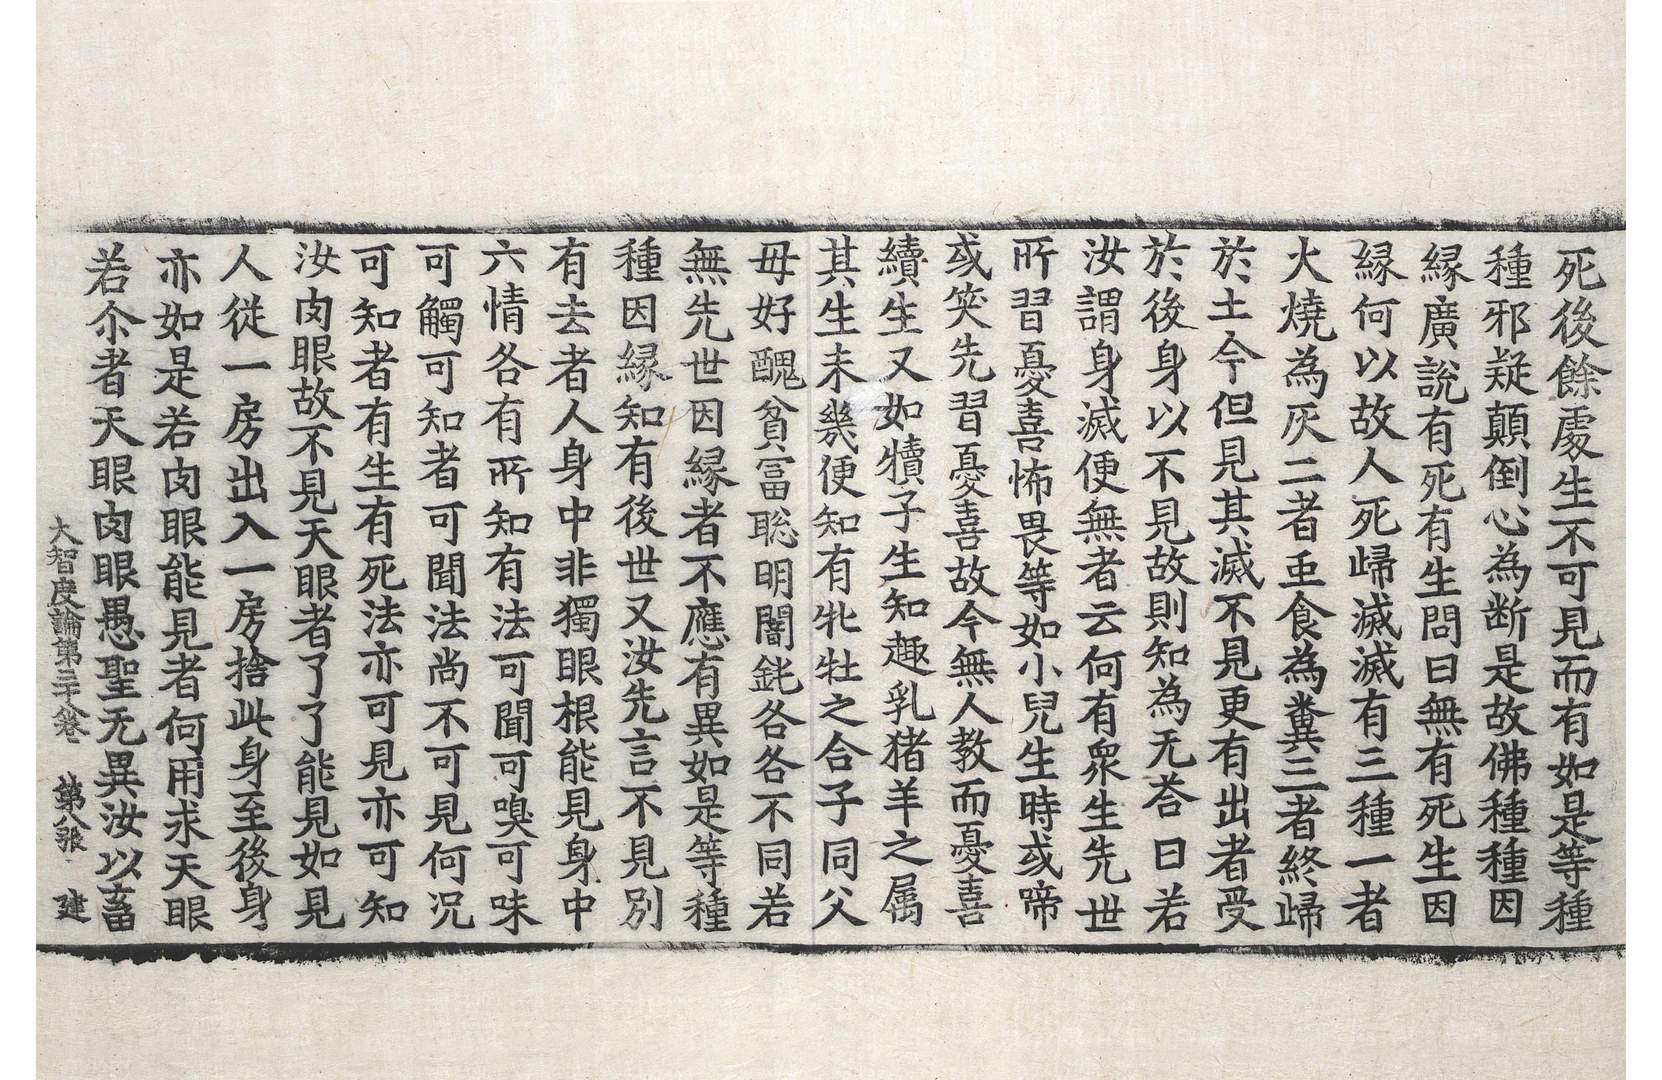 死後餘處生不可見而有如是等種
種邪疑顛倒心為断是故佛種種因
縁廣説有死有生問曰無有死生因
縁何以故人死歸滅滅有三種一者
火燒為灰二者虫食為糞三者終歸
於土今但見其滅不見更有出者受
於後身以不見故則知為无荅曰若
汝謂身滅便無者云何有衆生先世
所習憂喜怖畏等如小兒生時或啼
或笑先習憂喜故今無人教而憂喜
續生又如犢子生知趣乳猪羊之属
其生未幾便知有牝牡之合子同父
母好醜貧冨聡明闇鈍各各不同若
無先世因縁者不應有異如是等種
種因縁知有後世又汝先言不見别
有去者人身中非獨眼根能見身中
六情各有所知有法可聞可嗅可味
可觸可知者可聞法尚不可見何况
可知者有生有死法亦可見亦可知
汝肉眼故不見天眼者了了能見如見
人從一房出入一房捨此身至後身
亦如是若肉眼能見者何用求天眼
若尒者天眼肉眼愚聖无異汝以畜
大智度論第三十八卷 第八張 建